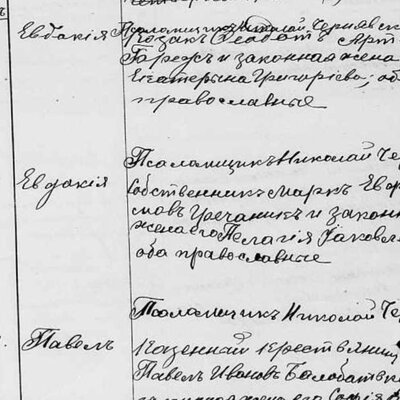 Евдокія
Псаломщикъ Николай Чернявск
Козакъ Ѳеодотъ Арт
Гаражъ и законная жена
Екатерина Григоріева; об
православные
Евдокія
Псаломщикъ Николай Че
Собственникъ Маркъ Евфи
мовъ Гречаникъ и закон
жена его Пелагія Іаковл
оба православные
Павелъ
Псаломщикъ Николай Че
Казенный крестьянин
Павелъ Ивановъ Болобат
законная жена его Софія